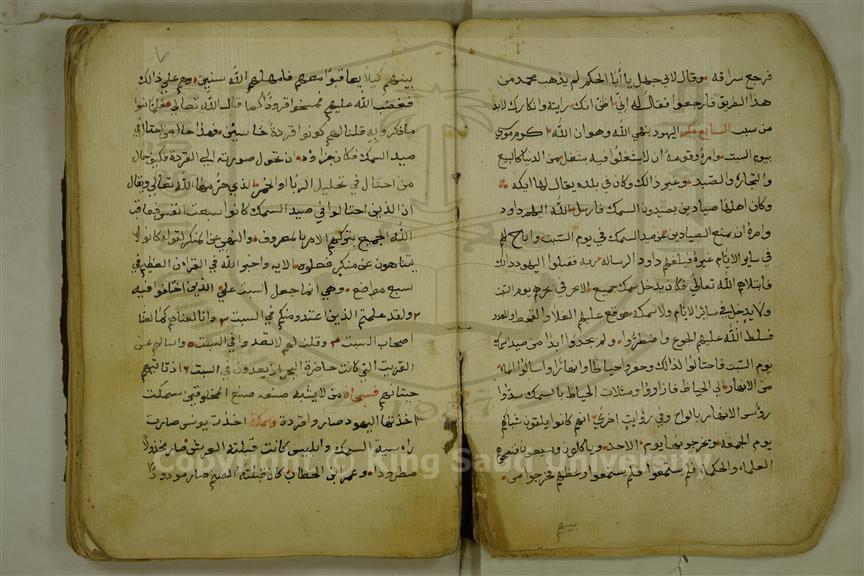 فرجع سراقه وقال لابي جهل يا أبا الحكم لم يذهب محمد من
هذا الطريق فارجعوا فقال له اني اظن انك رايته وانكارك لابد
من سبب السابع مكر اليهود بنهي الله وهو ان الله اكرم موسي
بيوم السبت وامره وقومه ان لا يشتغلوا فيه بشغل من الدنيا كالبيع
والتجارة والصيد وغير ذالك وكان في بلده يقال لها ايكه
وكان اهلها صيادين يصيدون السمك فارسل الله اليهم داود
وامره ان يمنع الصيادين عن صيد السمك في يوم السبت واباح لهم
في سايو الايام غيره فبلغهم داود الرسالة ربه فقبلوا اليهود ذالك
فابتلاهم الله تعالي فكان يدخل سمك جميع الابحر في بحرهم يوم السبت
ولا يدخل في سائر الايام ولا سمكة فوقع عليهم الغلا والقحط
فسلط الله عليهم الجوع واضطروا ولم يجدوا ابدا من صيد السمك
يوم السبت فاحتالوا لذالك وحفروا حياطا وانهارا واسالوا الماء
من الانهار الي الحياط فاذا وامتلات الحياط بالسمك سدوا
رؤس الانهار بالواح وفي رواية اخري انهم كانوا يلقون شباكهم
يوم الجمعه ويخرجونها يوم الاحد وياكلون ويبيعون فنصحهم
العلماء والحكماء فلم يستمعوا فلم يستمعوا وعظهم فخرجوا من
بينهم
بينهم كيلا يعاقبوا معهم فامهلهم الله سنين وهم علي ذالك
فغضب الله عليهم فمسخوا قرودا كما قال الله تعالي فلما نسوا
ماذكروا به قلنا لهم كونوا قردة خاسئين فهذا حال من احتال في
صيد السمك فكان جزاؤه ان تحول صورته الي القردة فكيف حال
من احتال في تحليل الربا والخمر الذي حرمها الله تعالي ويقال
ان الذين احتالوا في صيد السمك كانوا سبعت انفس فعاقب
الله الجميع بتركهم الامر بالمعروف والنهي عن المنكر لقوله كانوا لا
يتناهون عن منكر فعلوه الايه واخبر الله في القرءان العظيم في
سبع مواضع وهي انما جعل السبت علي الذين اختلفوا فيه
ولقد علمتم الذين اعتدو منكم في السبت او نلعنهم كما لعنا
اصحاب السبت وقلنا لهم لا تعدوا في السبت واسالهم عن
القريت التي كانت حاضرة البحر اذ يعدون في السبت اذ تاتيهم
حيتانهم فسبحان من لا يشبه صنعه صنع المخلوقين سمكت
اخذتها اليهود صاروا قردة وسمكة اخذت يونس صارت
راءسية السمك وابليس كانت قبلته العرش صار مخذولا
مطرودا وعمر بن الخطاب كان قبلته الصنم صار مودودا
Copyright © King Saud University
1957